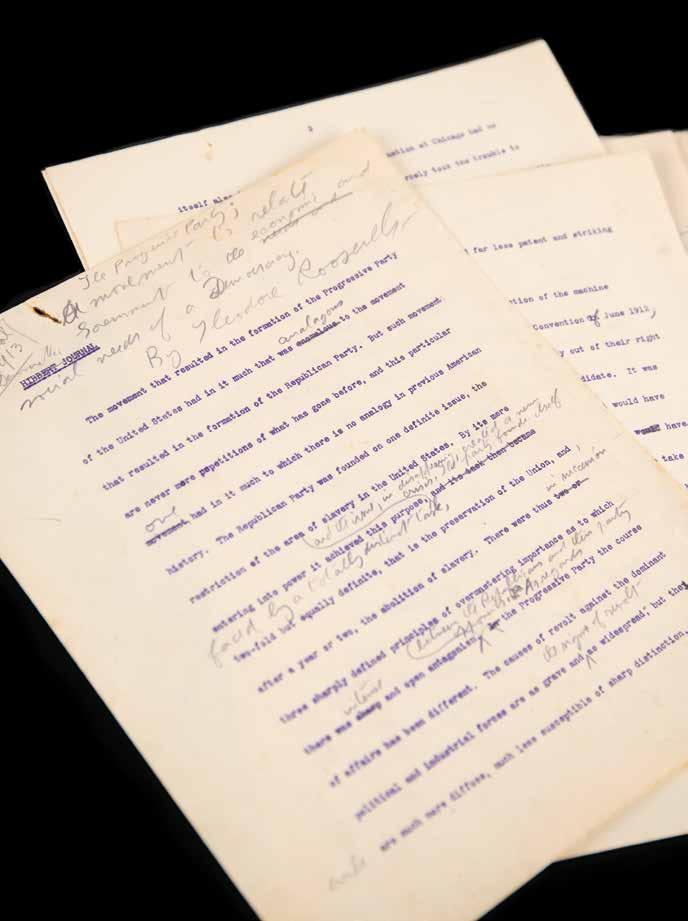 2
itself
at Chicago had no
took the trouble to
far less patent and striking
of the machine
Convention of June 1912,
out of their right
It was
would have
have
take
The Progressive Party;
A movement is relat
Soremnent to the economic and
social needs of a Democracy.
By Theodore Roosevelt
HIBBERT JOURNAL
The movement that resulted in the formation of the Progressive Party
analagous
of the United States had in it much that was anomalous to the movement
that resulted in the formation of the Republican Party. But such movement
are never mere repetitions of what has gone before, and this particular
one
movement had in it much to which there is no analogy in previous American
history. The Republican Party was founded on one definite issue, the
restriction of the area of slavery in the United States. By its mere
and the issue, in disappearing, created a new
crisis; the party found itself
entering into power it achieved this purpose, and its task then became
faced by a totally distinct task,
in succession
two-fold but equally definite, that is the preservation of the Union, and,
after a year or two, the abolition of slavery. There were thus two or
three sharply defined principles of overmastering importance as to which
between the Republicans and their party
opponents. As regards
there was sharp and open antagonism. the Progressive Party the course
intense
of affairs has been different. The causes of revolt against the dominant
the signs of revolt
political and industrial forces are as grave and as widespread, but they
are much more diffuse, much less susceptible of sharp distinction,